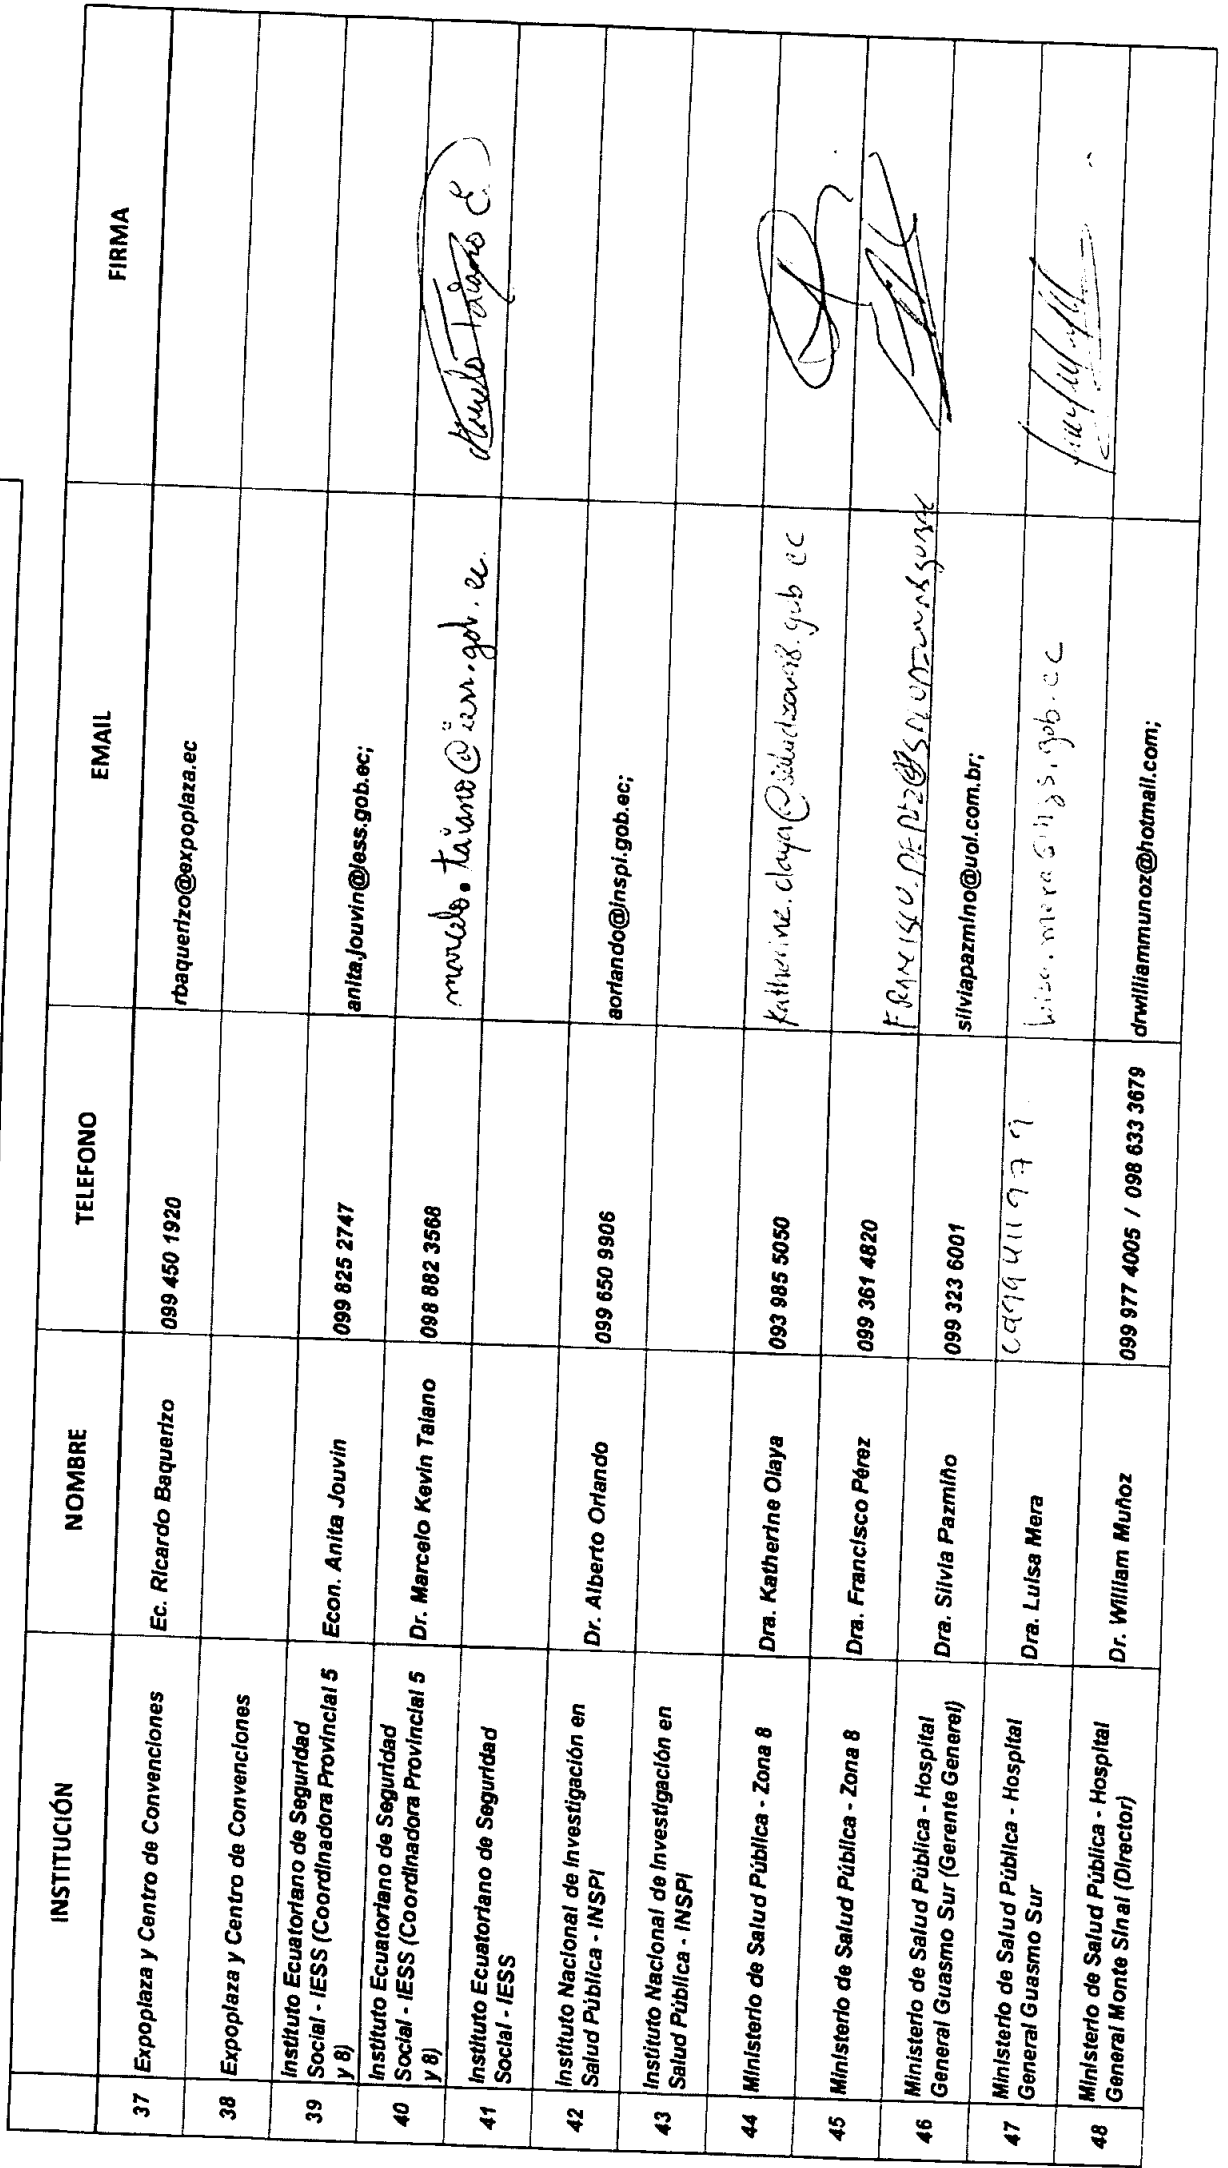 INSTITUCIÓN NOMBRE TELEFONO EMAIL FIRMA
37 Expoplaza y Centro de Convenciones Ec. Ricardo Baquerizo 099 450 1920 rbaquerizo@expoplaza.ec
38 Expoplaza y Centro de Convenciones
39 Instituto Ecuatoriano de Seguridad
Social - IESS (Coordinadora Provincial 5
y 8) Econ. Anita Jouvin 099 825 2747 anita.jouvin@iess.gob.ec;
40 Instituto Ecuatoriano de Seguridad
Social - IESS (Coordinadora Provincial 5
y 8) Dr. Marcelo Kevin Taiano 098 882 3568 marcelo.taiano@iess.gob.ec. Marcelo Taiano E
41 Instituto Ecuatoriano de Seguridad
Social - IESS
42 Instituto Nacional de Investigación en
Salud Pública - INSPI Dr. Alberto Orlando 099 650 9906 aorlando@inspi.gob.ec;
43 Instituto Nacional de Investigación en
Salud Pública - INSPI
44 Ministerio de Salud Pública - Zona 8 Dra. Katherine Olaya 093 985 5050 Katherine.olaya@saludzona8.gob ec
45 Ministerio de Salud Pública - Zona 8 Dra. Francisco Pérez 099 361 4820
46 Ministerio de Salud Pública - Hospital
General Guasmo Sur (Gerente General) Dra. Silvia Pazmiño 099 323 6001 silviapazmino@uol.com.br;
47 Ministerio de Salud Pública - Hospital
General Guasmo Sur Dra. Luisa Mera 0999411979
48 Ministerio de Salud Pública - Hospital
General Monte Sinai (Director) Dr. William Muñoz 099 977 4005 / 098 633 3679 drwilliammunoz@hotmail.com;